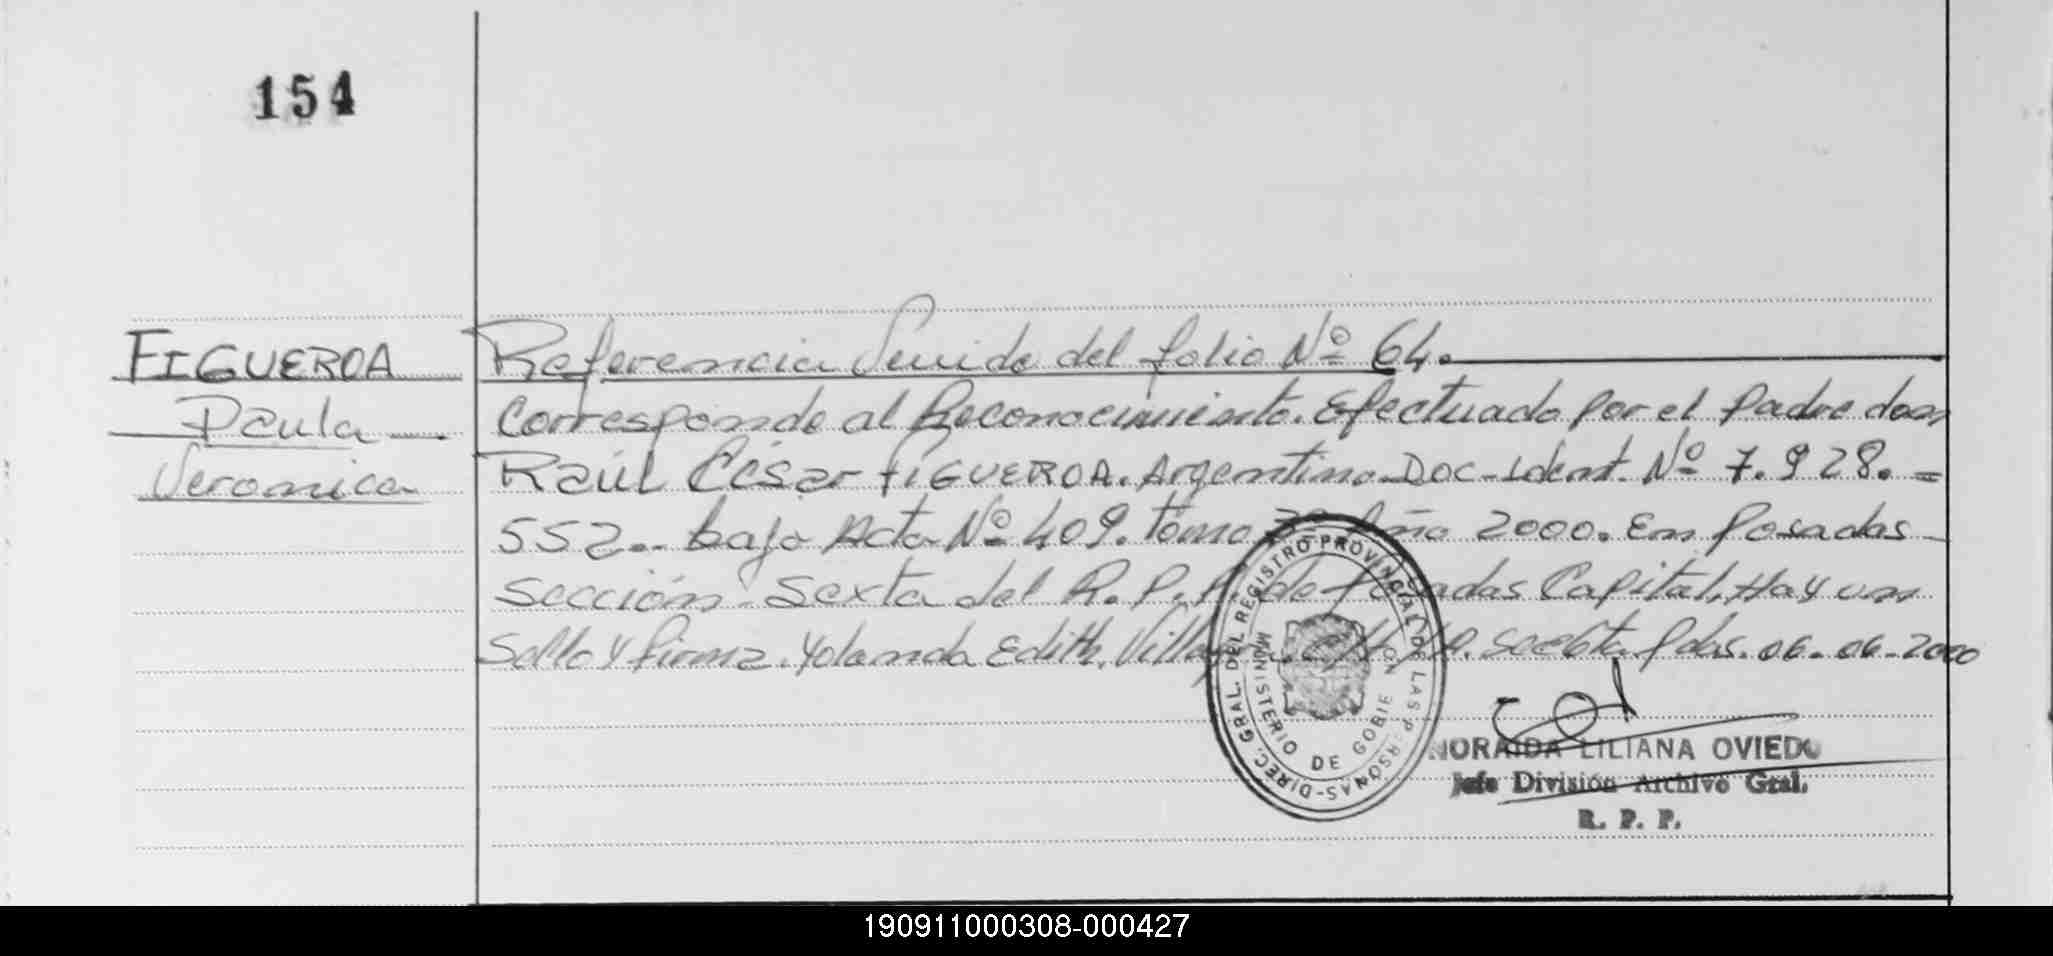 154
FIGUEROA
Paula
Veronica
Referencia Venida del folio Nº 64.
Corresponde al Reconocimiento. Efectuado por el Padre don
Raúl César FIGUEROA. Argentino. DOC-Ident. Nº 7.928.=
552.- bajo Acta Nº 409. tomo Año 2000. En Posadas
Sección Sexta del R. P. P. de Posadas Capital, Hay un
Sello y firma. Yolanda Edith. 06-06-2000
DIREC. GRAL. DEL REGISTRO PROVINCIAL DE LAS PERSONAS-
MINISTERIO DE GOBIERNO
NORAIDA LILIANA OVIEDO
Jefe División Archivo Gral.
R. P. P.
190911000308-000427